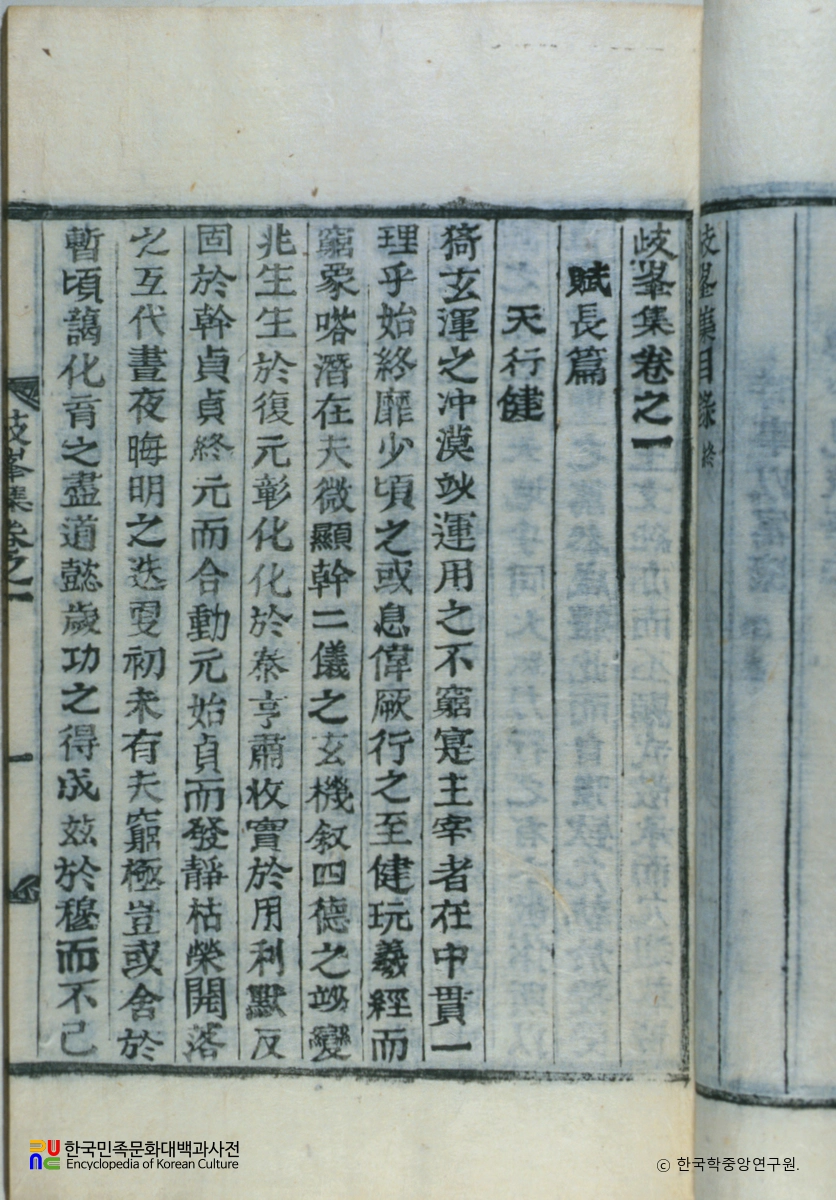 歧峯集目錄 終
歧峯集卷之一
賦長篇
天行健
猗玄渾之冲漠妙運用之不窮寔主宰者在中貫一
理乎始終靡少頃之或息偉厥行之至健玩羲經而
窮象嗒潛在夫微顯幹二儀之玄機敘四德之妙變
兆生生於復元彰化化於泰亨肅收實於用利默反
固於幹貞貞終元而合動元始貞而發靜枯榮開落
之互代晝夜晦明之迭更初未有夫窮極豈或舍於
暫頃藹化育之盡道懿歲功之得成玆於穆而不已
歧峯集卷之一
一
한국민족문화대백과사전
Encyclopedia of Korean Culture
ⓒ 한국학중앙연구원.